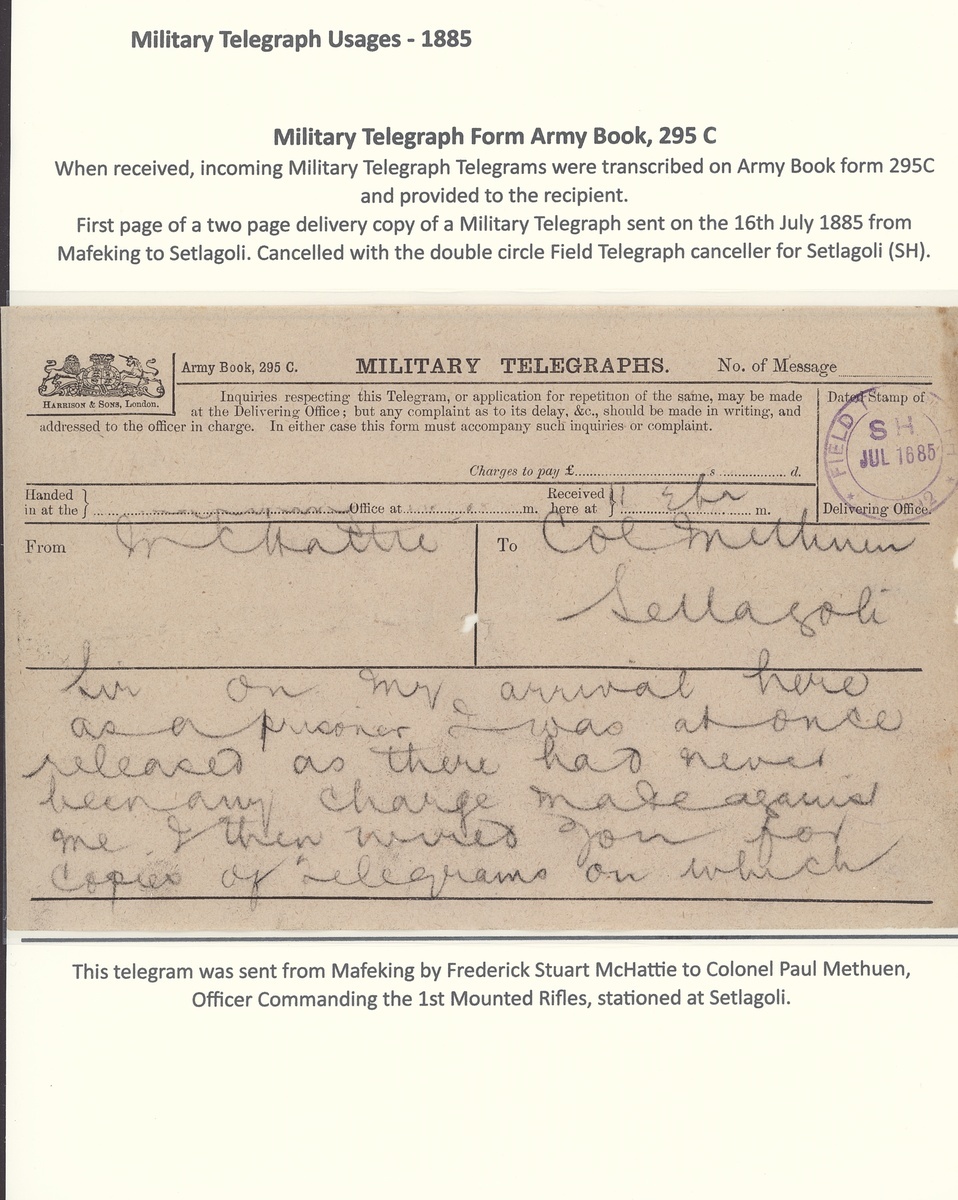 Military Telegraph Usages - 1885
Military Telegraph Form Army Book, 295 C
When received, incoming Military Telegraph Telegrams were transcribed on Army Book form 295C
and provided to the recipient.
First page of a two page delivery copy of a Military Telegraph sent on the 16th July 1885 from
Mafeking to Setlagoli. Cancelled with the double circle Field Telegraph canceller for Setlagoli (SH).
HARRISON & SONS, London.
Army Book, 295 C.
MILITARY TELEGRAPHS.
No. of Message
Inquiries respecting this Telegram, or application for repetition of the same, may be made
at the Delivering Office; but any complaint as to its delay, &c., should be made in writing, and
addressed to the officer in charge. In either case this form must accompany such inquiries or complaint.
Charges to pay £ s d.
Date Stamp of
FIELD
SH
JUL 16 85
Delivering Office.
Handed
in at the } Office at m.
Received
here at } m.
From McHattie
To Col Methuen
Setlagoli
Sir on my arrival here
as a prisoner I was at once
released as there had never
been any charge made against
me. I then wired you for
copies of telegrams on which
This telegram was sent from Mafeking by Frederick Stuart McHattie to Colonel Paul Methuen,
Officer Commanding the 1st Mounted Rifles, stationed at Setlagoli.